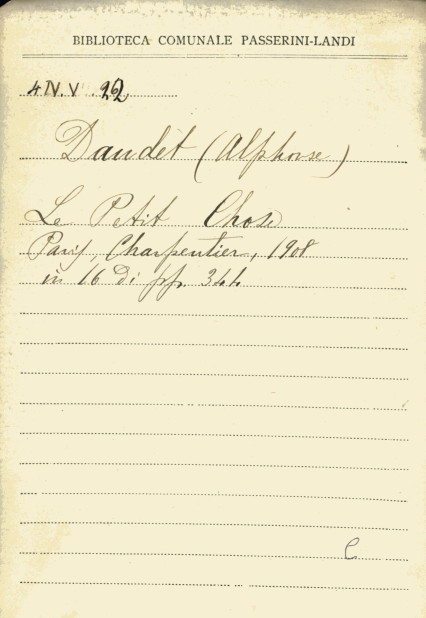 BIBLIOTECA COMUNALE PASSERINI-LANDI
4 IV. V. 22
Daudet (Alphonse)
Le Petit Chose
Paris, Charpentier, 1908
in 16 di pp. 344
C